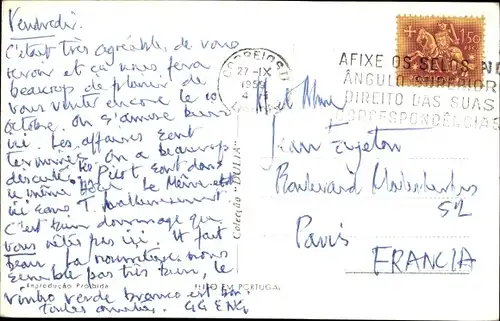 Vendredi.
C'était très agréable de vous
revoir et ça nous fera
beaucoup de plaisir de
vous venir encore le 10
octobre. On s'amuse bien
ici. Les affaires sont
terminées. On a beaucoup
discuté. Piet dans
le même
ici sans T. malheureusement.
C'est bien dommage que
vous n'êtes pas ici. Il fait
beau. La nourriture nous
semble pas très bien, le
vinho verde branco est bon.
Toutes amitiés. GG ENG
Reprodução Proibida
FEITO EM PORTUGAL
Colecção "DÚLIA"
CORREIOS
27-IX
1959
AFIXE OS SELOS NO
ÂNGULO SUPERIOR
DIREITO DAS SUAS
CORRESPONDÊNCIAS
1$50
M et Mme
Jean
Boulevard
52
Paris
FRANCIA